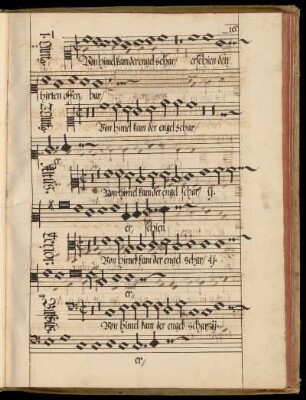 Von himel kam der engel schar/ erschien den
hirten offen bar/
Von himel kam der engel schar/
er
Altus
Von himel kam der engel schar/ ij
er schien
Tenor
Von himel kam der engel schar/ ij
er/
Bassus
Von himel kam der engel schar/ ij
er/